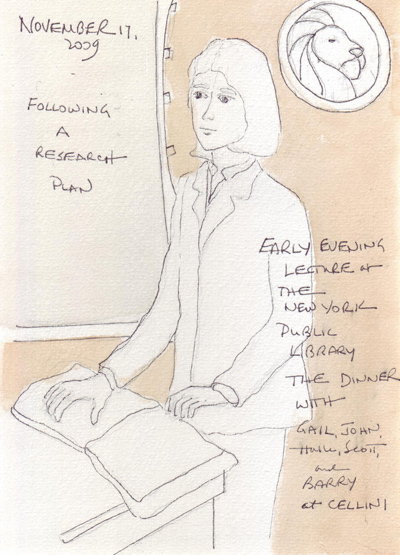 NOVEMBER 17,
2009
FOLLOWING
A
RESEARCH
PLAN
EARLY EVENING
LECTURE at
THE
NEW YORK
PUBLIC
LIBRARY
THE DINNER
WITH
GAIL, JOHN,
Scott,
and
BARRY
at CELLINI